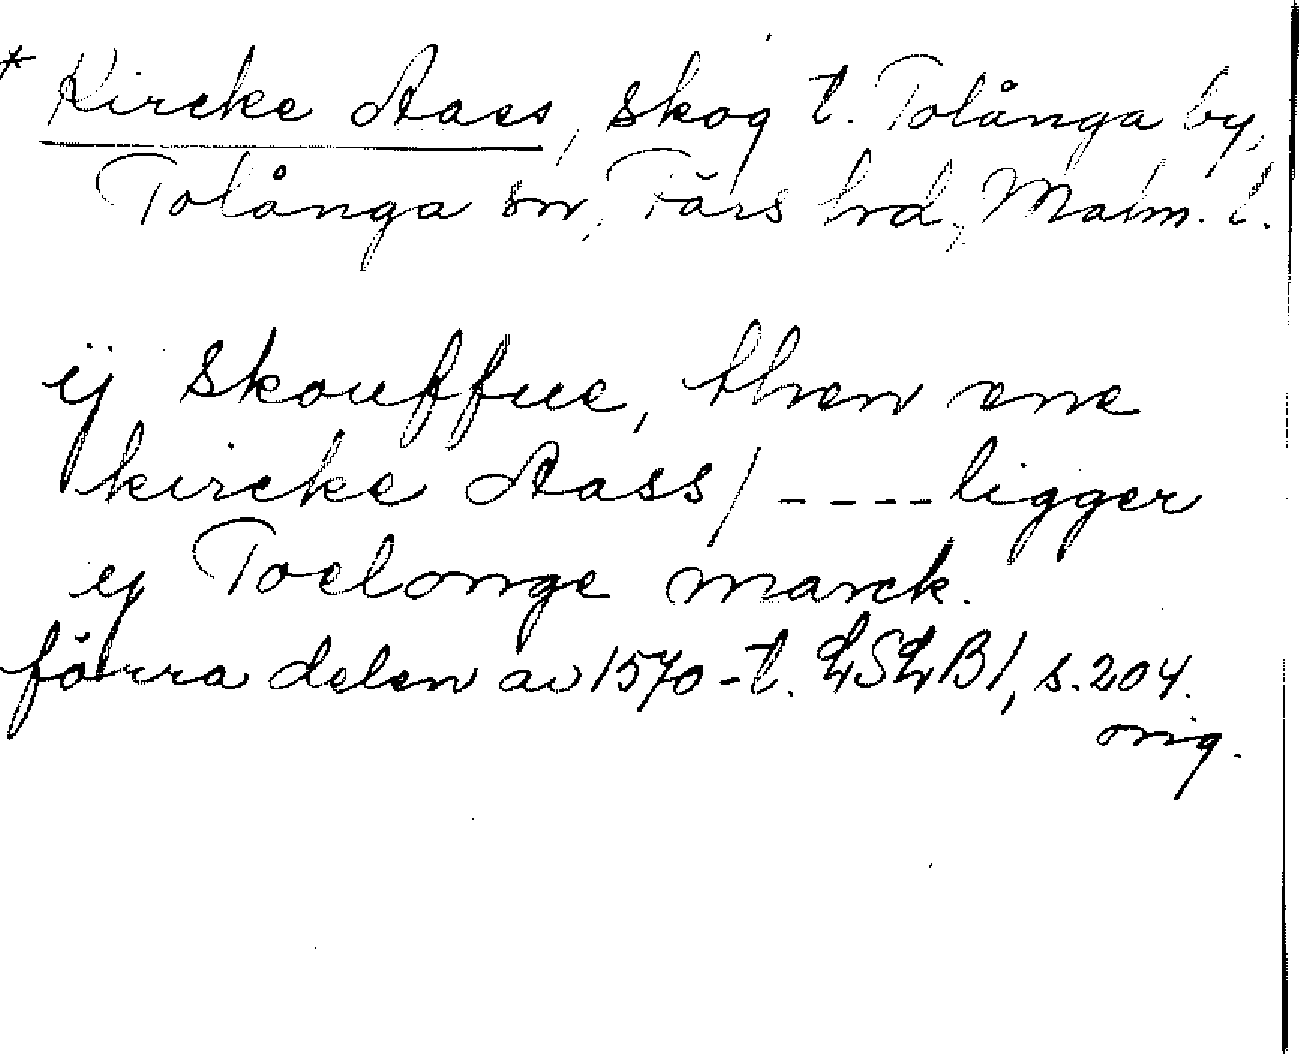 * Kircke Aass, skog t. Tolånga by,
Tolånga sn, Färs hrd, Malm. l.
ij skouffue, then ene
kircke Aass / ---- ligger
ij Toelonge marck.
förra delen av 1570-t. LSLB1, s. 204.
orig.